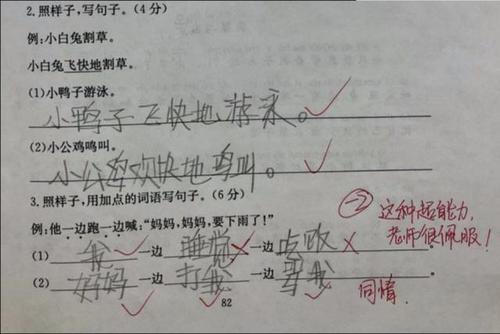 2.照样子,写句子。(4分)
例:小白兔割草。
小白兔飞快地割草。
(1)小鸭子游泳。
小鸭子飞快地游泳。
(2)小公鸡鸣叫。
小公鸡欢快地鸣叫。
3.照样子,用加点的词语写句子。(6分)
例:他一边跑一边喊:“妈妈,妈妈,要下雨了!”
(1) 我 一边 睡觉 一边 卖 。
(2) 妈妈 一边 打我 一边 骂我 。
-2 这种超能力,
老师很佩服!
同情.
82